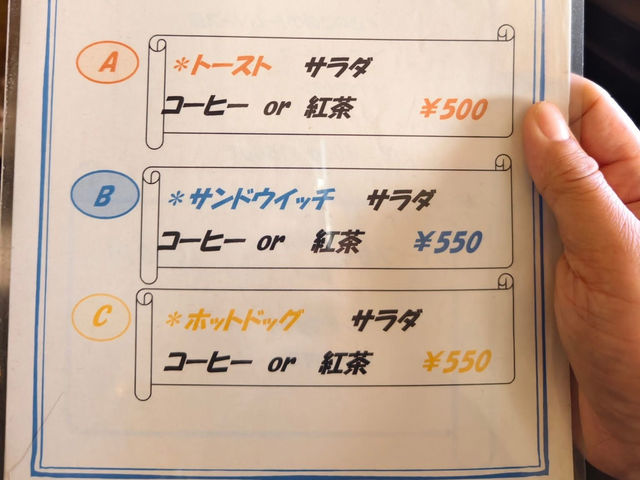 A
＊トースト サラダ
コーヒー or 紅茶 ￥500
B
＊サンドウイッチ サラダ
コーヒー or 紅茶 ￥550
C
＊ホットドッグ サラダ
コーヒー or 紅茶 ￥550